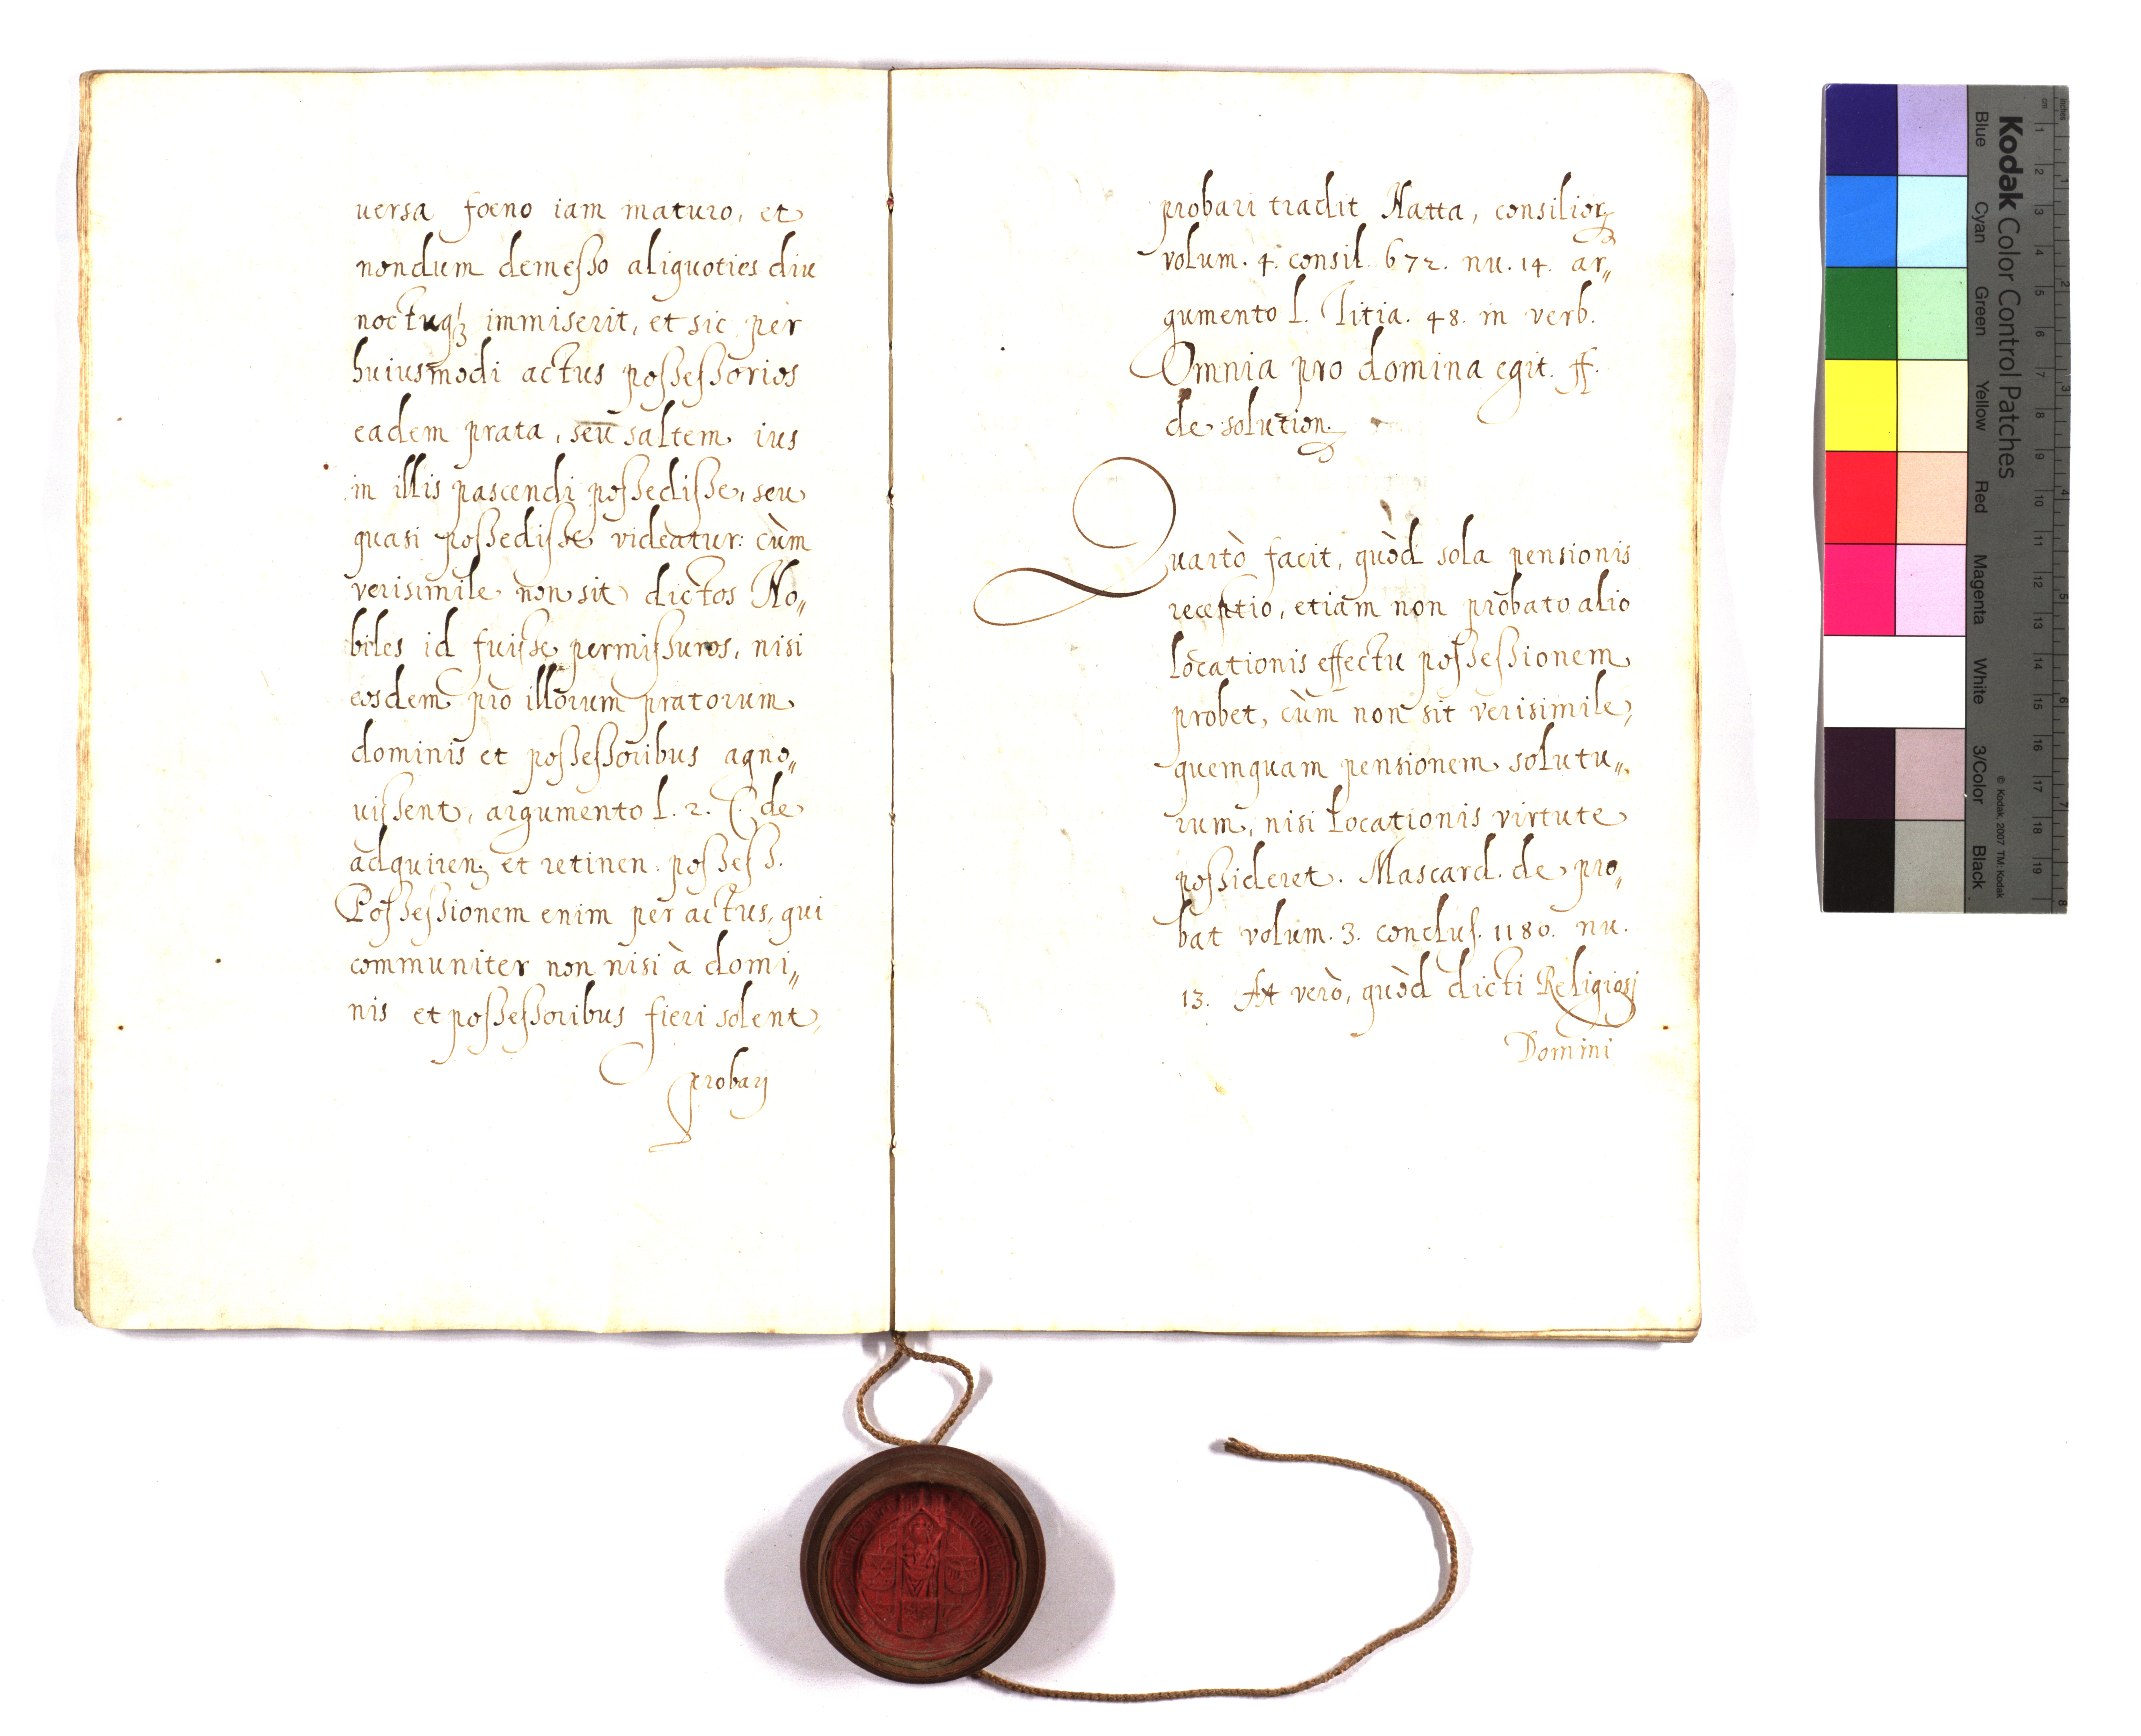 uersa foeno iam maturo, et
nondum demeſso aliquoties diu
noctuqȝ immiserit, et sic per
huiusmodi actus poſseſsorios
eadem prata, seu saltem ius
in illis pascendi poſsediſse, seu
quasi poſsediſse videatur: cùm
verisimile non sit dictos No„
biles id fuiſse permiſsuros, nisi
eosdem pro illorum pratorum
dominis et poſseſsoribus agno„
uiſsent, argumento l. 2. C. de
adquirenȝ et retinen: poſseſs.
Poſseſsionem enim per actus, qui
communiter non nisi à domi„
nis et poſseſsoribus fieri solent,
probarj
probari tradit Natta, consilior
volum. 4. consil. 672. nu. 14. ar„
gumento l. Titia. 48. in verb.
Omnia pro domina egit. ff.
de solution.
Quartò facit, quòd sola pensionis
receptio, etiam non probato alio
locationis effectu poſseſsionem
probet, cùm non sit verisimile,
quemquam pensionem solutu„
rum, nisi locationis virtute
poſsideret. Mascard. de pro„
bat volum. 3. concluſ. 1180. nu.
13. At verò, quòd dicti Religiosj
Domini
Kodak Color Control Patches
Blue Cyan Green Yellow Red Magenta White 3/Color Black
© Kodak, 2007 TM: Kodak
cm 1 2 3 4 5 6 7 8 9 10 11 12 13 14 15 16 17 18 19
inches 1 2 3 4 5 6 7 8